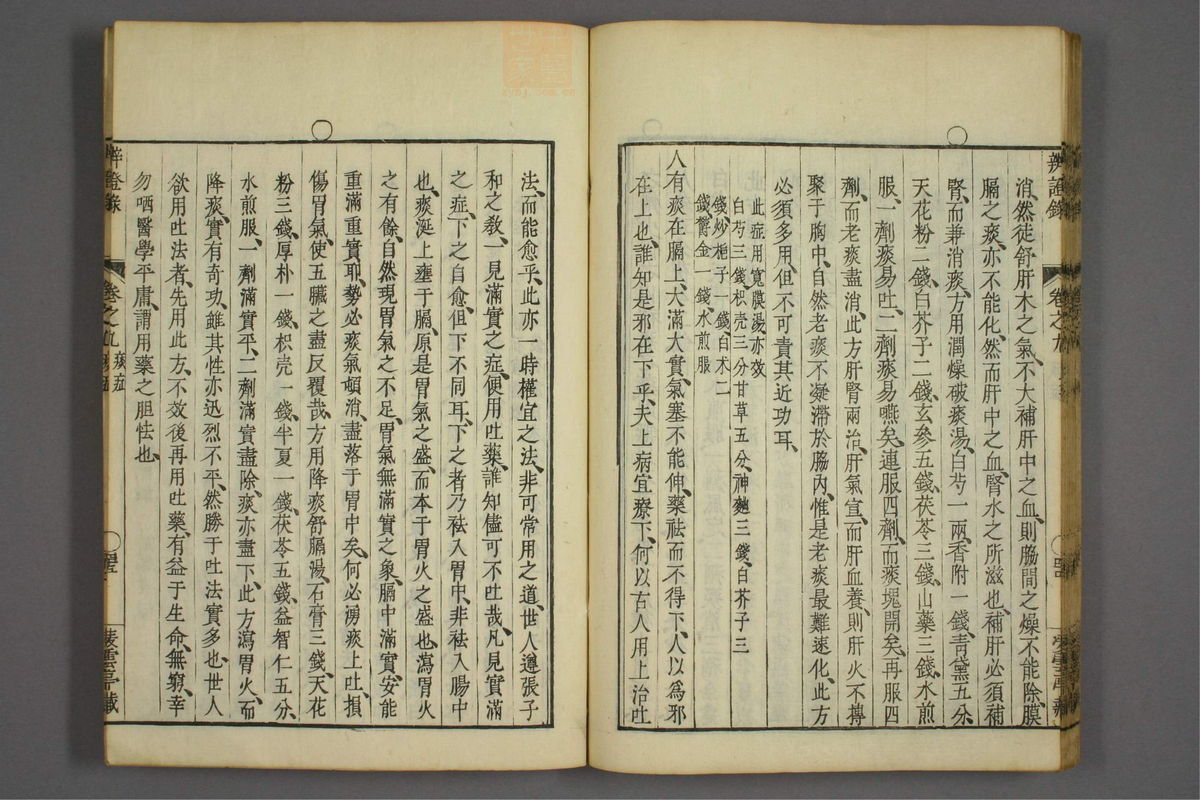 辨證錄
卷之九
消、然徒舒肝木之氣、不大補肝中之血、則膈間之燥不能除、膜
膈之痰、亦不能化、然而肝中之血、腎水之所滋也、補肝必須補
腎、而兼消痰、方用潤燥破痰湯、白芍一兩、香附一錢、青黛五分、
天花粉二錢、白芥子二錢、玄參五錢、茯苓三錢、山藥三錢、水煎
服、一劑痰易吐、二劑痰易嚥矣、連服四劑、而痰塊開矣、再服四
劑、而老痰盡消、此方肝腎兩治、肝氣宣、而肝血養、則肝火不摶
聚于胸中、自然老痰不凝滯於膈內、惟是老痰最難速化、此方
必須多用、但不可責其近功耳、
此症用寬膜湯亦效
白芍三錢、枳壳三分、甘草五分、神麴三錢、白芥子三
錢、炒梔子一錢、白术二
錢、鬱金一錢、水煎服
人有痰在膈上、大滿大實、氣塞不能伸、藥祛而不得下、人以爲邪
在上也、誰知是邪在下乎、夫上病宜療下、何以古人用上治吐
法、而能愈乎、此亦一時權宜之法、非可常用之道、世人遵張子
和之教、一見滿實之症、便用吐藥、誰知儘可不吐哉、凡見實滿
之症、下之自愈、但下不同耳、下之者乃祛入胃中、非祛入腸中
也、痰涎上壅于膈、原是胃氣之盛、而本于胃火之盛也、瀉胃火
之有餘、自然現胃氣之不足、胃氣無滿實之象、膈中滿實、安能
重滿重實耶、勢必痰氣頓消、盡落于胃中矣、何必湧痰上吐、損
傷胃氣、使五臟之盡反覆哉、方用降痰舒膈湯、石膏三錢、天花
粉三錢、厚朴一錢、枳壳一錢、半夏一錢、茯苓五錢、益智仁五分、
水煎服、一劑滿實平、二劑滿實盡除、痰亦盡下、此方瀉胃火、而
降痰、實有奇功、雖其性亦迅烈不平、然勝于吐法實多也、世人
欲用吐法者、先用此方、不效後再用吐藥、有益于生命無窮、幸
勿哂醫學平庸、謂用藥之胆怯也、
辨證錄
卷之九